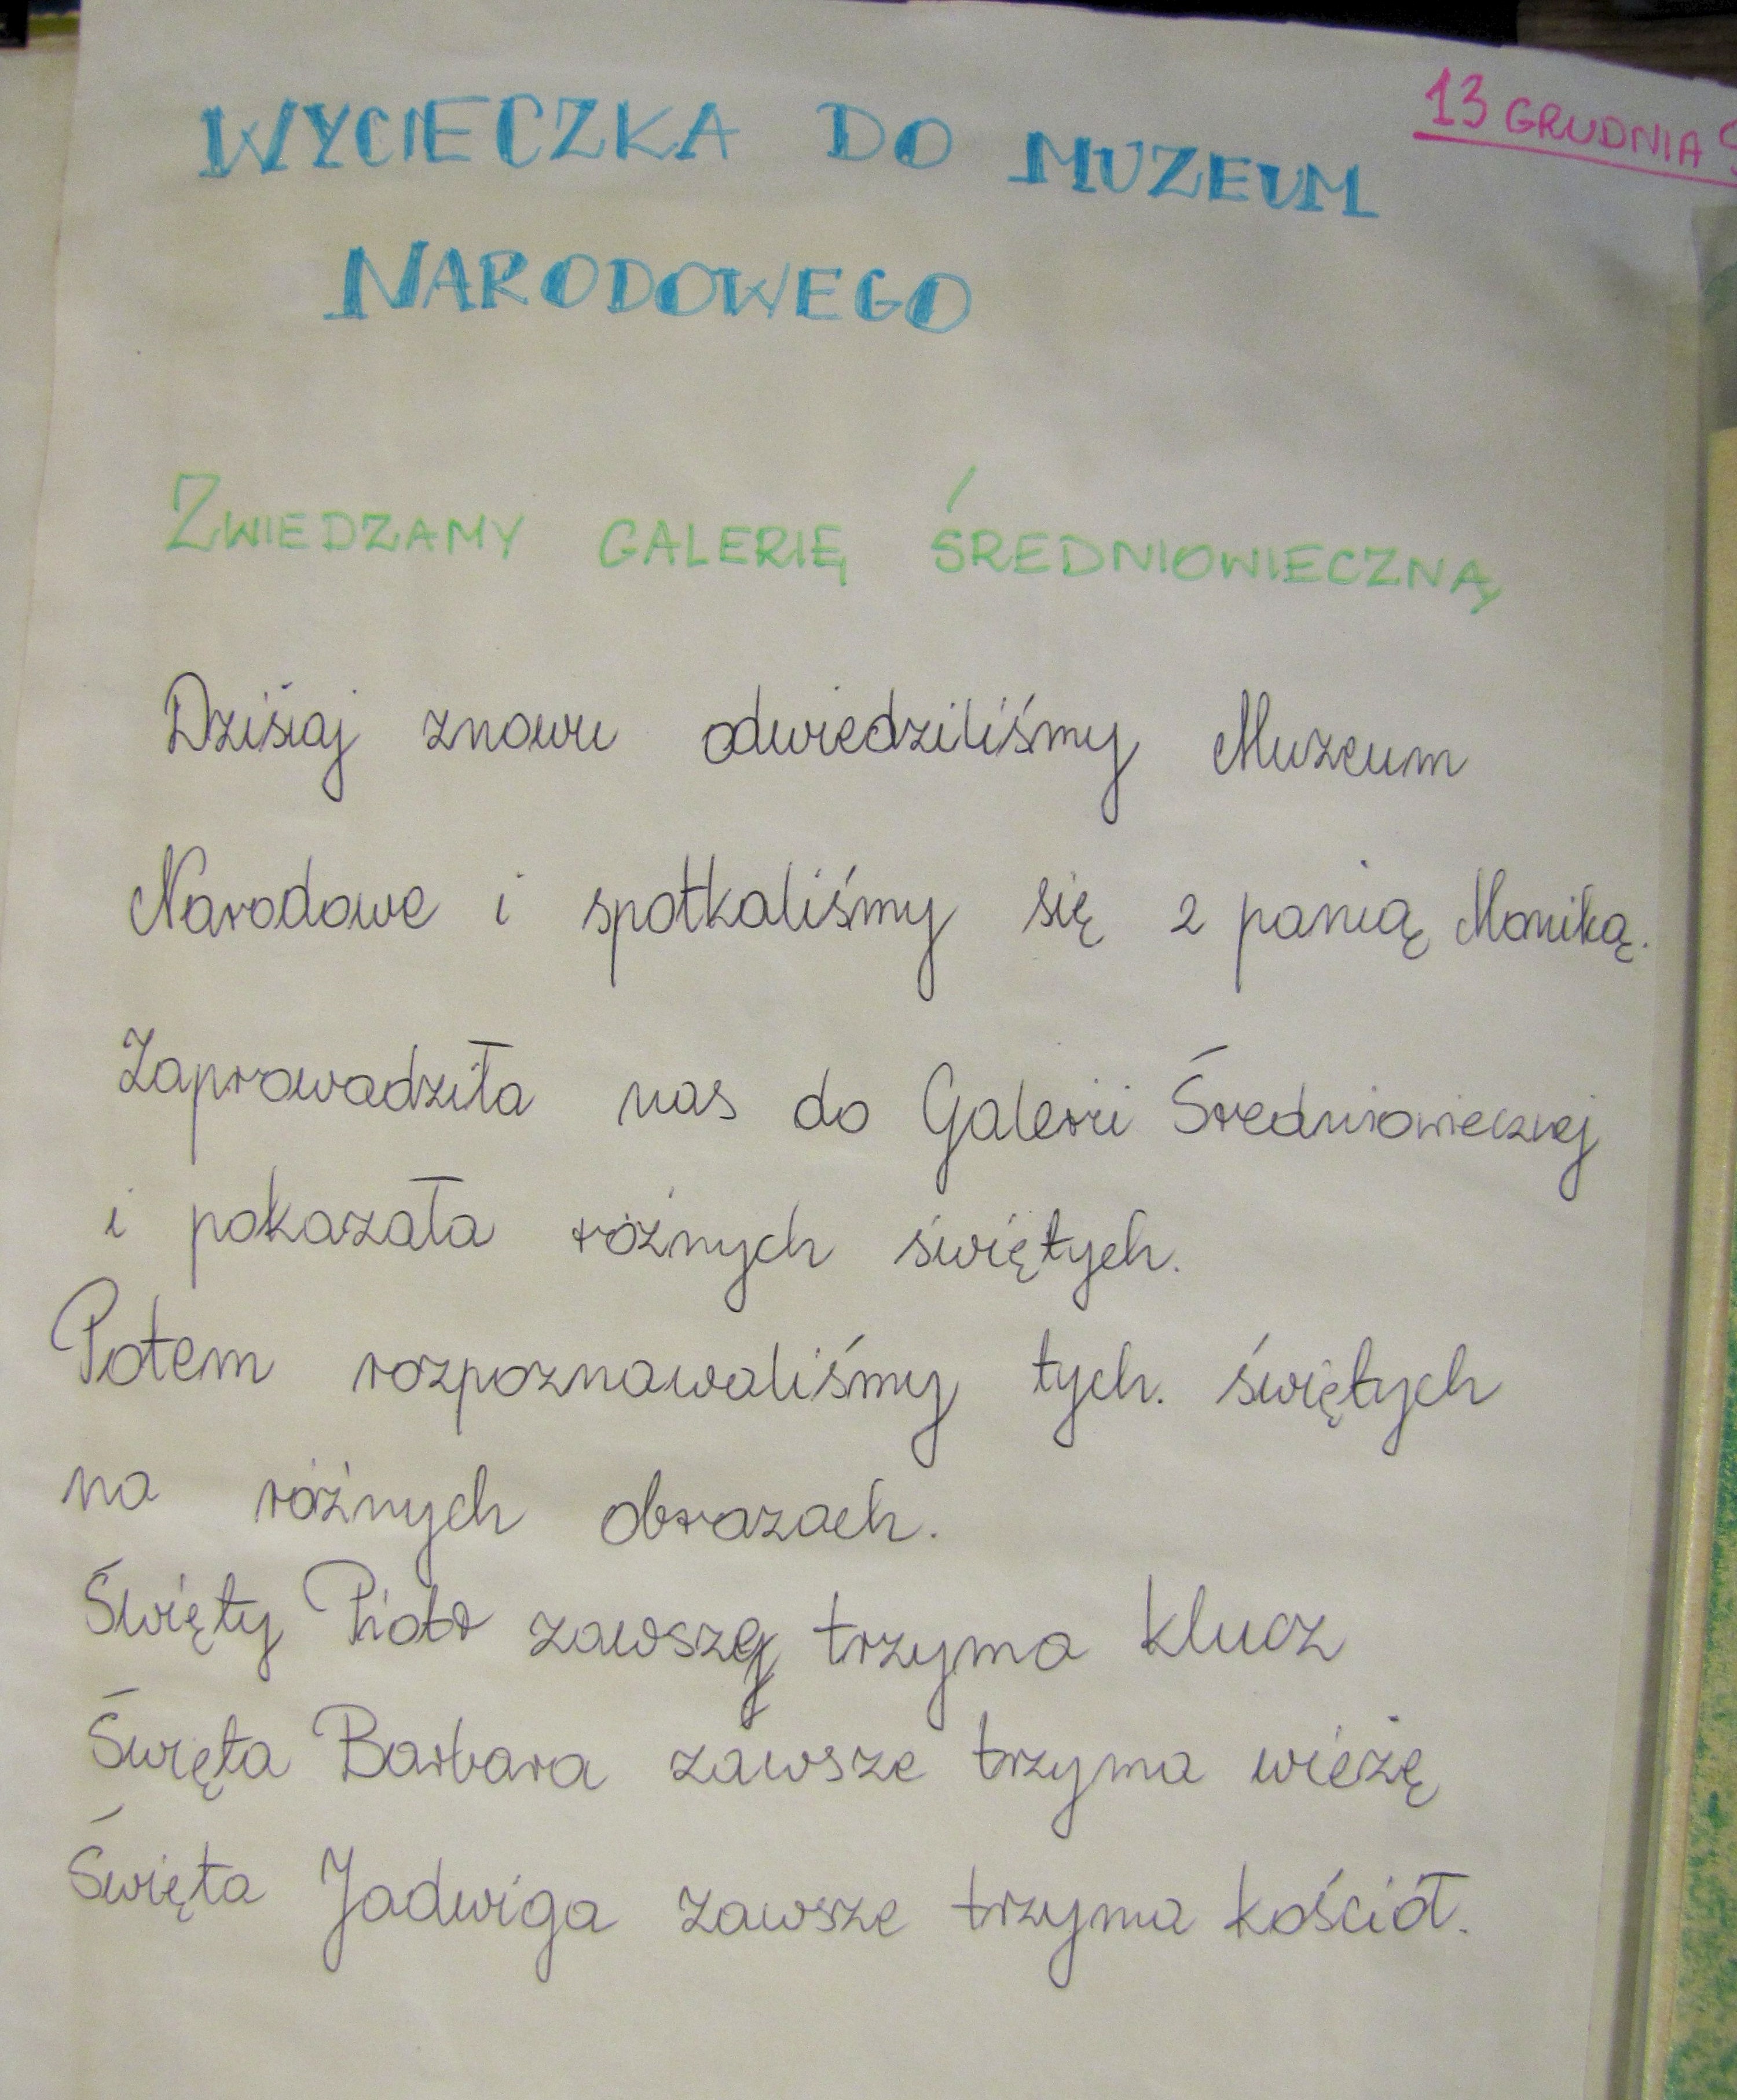 13 GRUDNIA
WYCIECZKA DO MUZEUM
NARODOWEGO
ZWIEDZAMY GALERIĘ ŚREDNIOWIECZNĄ
Dzisiaj znowu odwiedziliśmy Muzeum
Narodowe i spotkaliśmy się z panią Moniką.
Zaprowadziła nas do Galerii Średniowiecznej
i pokazała różnych świętych.
Potem rozpoznawaliśmy tych. świętych
na różnych obrazach.
Święty Piotr zawsze trzyma klucz
Święta Barbara zawsze trzyma wieżę
Święta Jadwiga zawsze trzyma kościół.